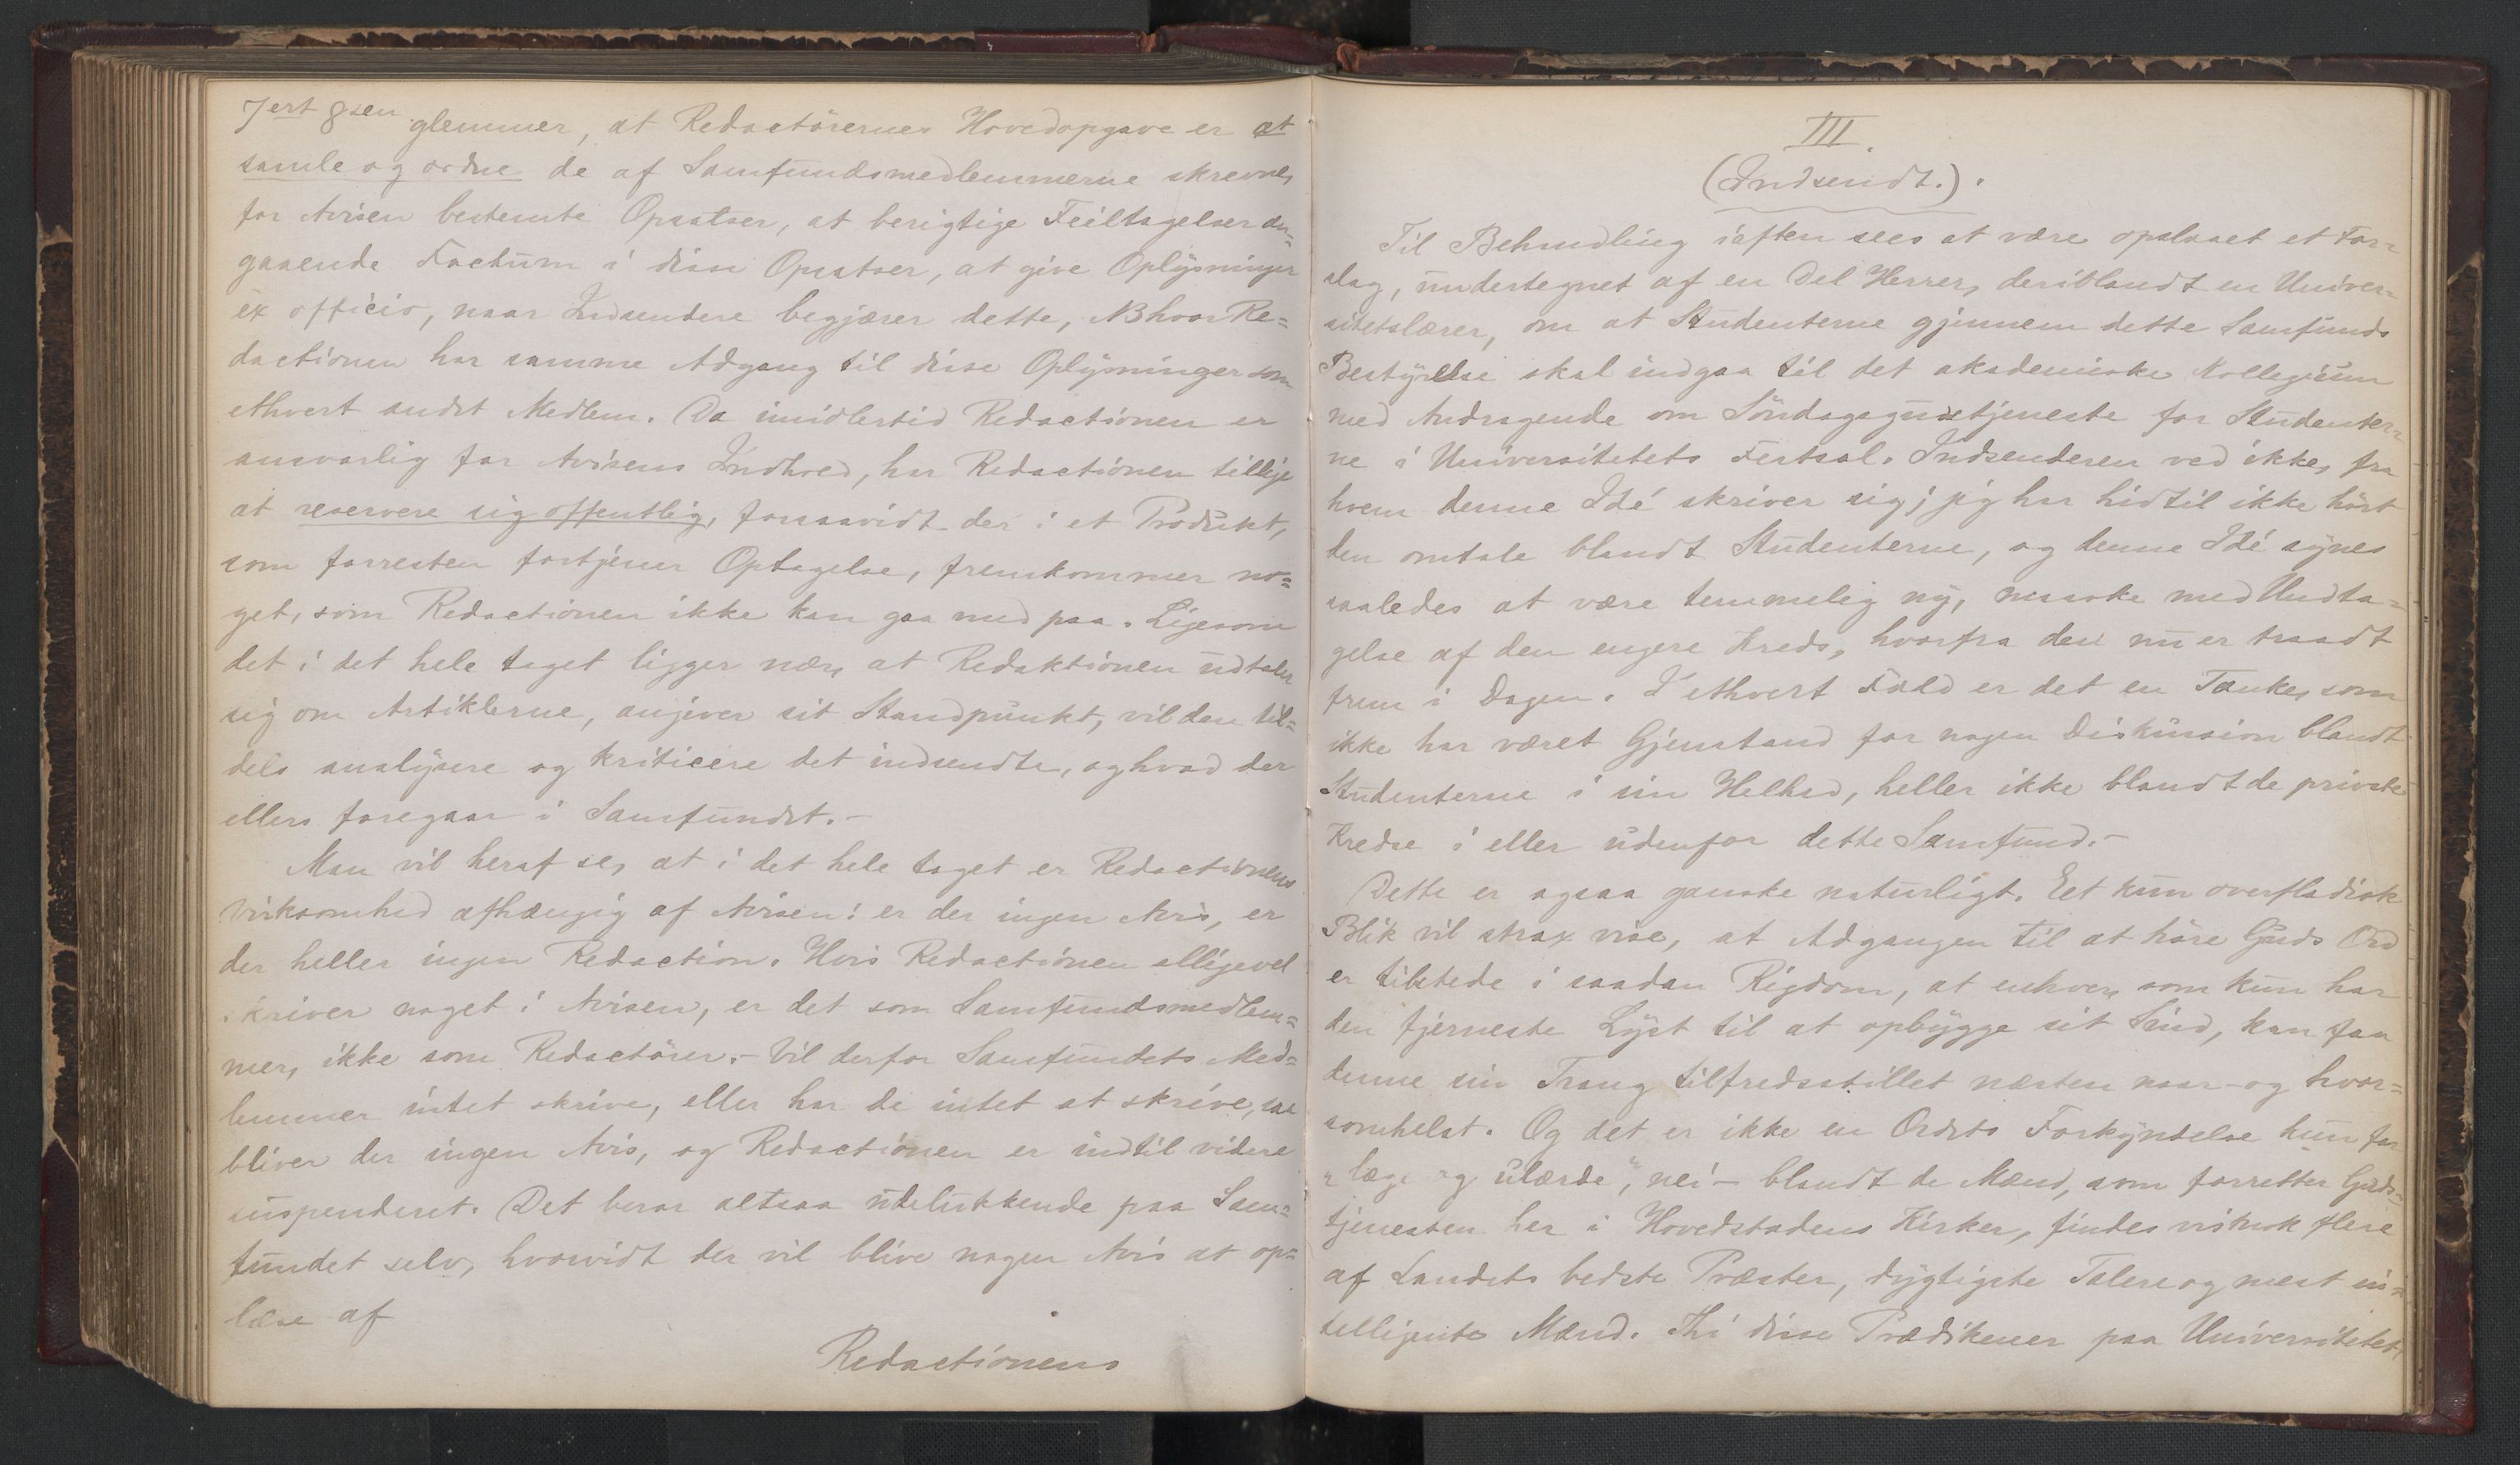 7ert 8sen glemmer, at Redactörernes Hovedopgave er at
samle og ordne de af Samfundsmedlemmerne skrevne,
for Avisen bestemte Opsatser, at berigtige Feiltagelser an-
gaaende Factum i disse Opsatser, at give Oplysninger
ex officio, naar Indsendere begjærer dette, NB hvor Re=
dactionen har samme Adgang til disse Oplysninger som
ethvert andet Medlem. Da imidlertid Redactionen er
ansvarlig for Avisens Indhold, har Redactionen tillige
at reservere sig offentlig, forsaavidt der i et Produkt,
som forresten fortjener Optagelse, fremkommer no=
get, som Redactionen ikke kan gaa med paa. Ligesom
det i det hele taget ligger nær, at Redaktionen udtaler
sig om Artiklerne, angiver sit Standpunkt, vil den til=
dels analysere og kriticere det indsendte, og hvad der
ellers foregaar i Samfundet.-
Man vil heraf se, at i det hele taget er Redactionens
Virksomhed afhængig af Avisen: er der ingen Avis, er
der heller ingen Redaction. Hvis Redactionen alligevel
skriver noget i Avisen, er det som Samfundsmedlem=
mer, ikke som Redactörer.- Vil derfor Samfundets Med=
lemmer intet skrive, eller har de intet at skrive, saa
bliver der ingen Avis, og Redactionen er indtil videre
suspenderet. Det beror altsaa udelukkende paa Sam=
fundet selv, hvorvidt der vil blive nogen Avis at op=
læse af
Redactionens
III.
(Indsendt.).
Til Behandling iaften sees at være opslaaet et For=
slag, undertegnet af en Del Herrer, deriblandt en Univer=
sitetslærer, om at Studenterne gjennem dette Samfunds
Bestyrelse skal indgaa til det akademiske Kollegium
med Andragende om Söndagsgudstjeneste for Studenter=
ne i Universitetets Festsal. Indsenderen ved ikke, fra
hvem denne Idé skriver sig; jeg har hidtil ikke hört
den omtale blandt Studenterne, og denne Idé synes
saaledes at være temmelig ny, maaske med Undta=
gelse af den engere Kreds, hvorfra den nu er traadt
frem i Dagen. I ethvert Fald er det en Tanke, som
ikke har været Gjenstand for nogen Diskussion blandt
Studenterne i sin Helhed, heller ikke blandt de private
Kredse i eller udenfor dette Samfund.-
Dette er ogsaa ganske naturligt. Eet kun overfladisk
Blik vil strax vise, at Adgangen til at höre Guds Ord
er tilstede i saadan Rigdom, at enhver, som kun har
den fjerneste Lyst til at opbygge sit Sind, kan faa
denne sin Trang tilfredsstillet næsten naar- og hvor=
somhelst. Og det er ikke en Ordets Forkyndelse kun for
"læge og ulærde", nei - blandt de Mænd, som forretter Guds=
tjenesten her i Hovedstadens Kirker, findes vistnok flere
af Landets bedste Præster, dygtigste Talere og mest in=
telligente Mænd. Thi disse Prædikener paa Universitetet,